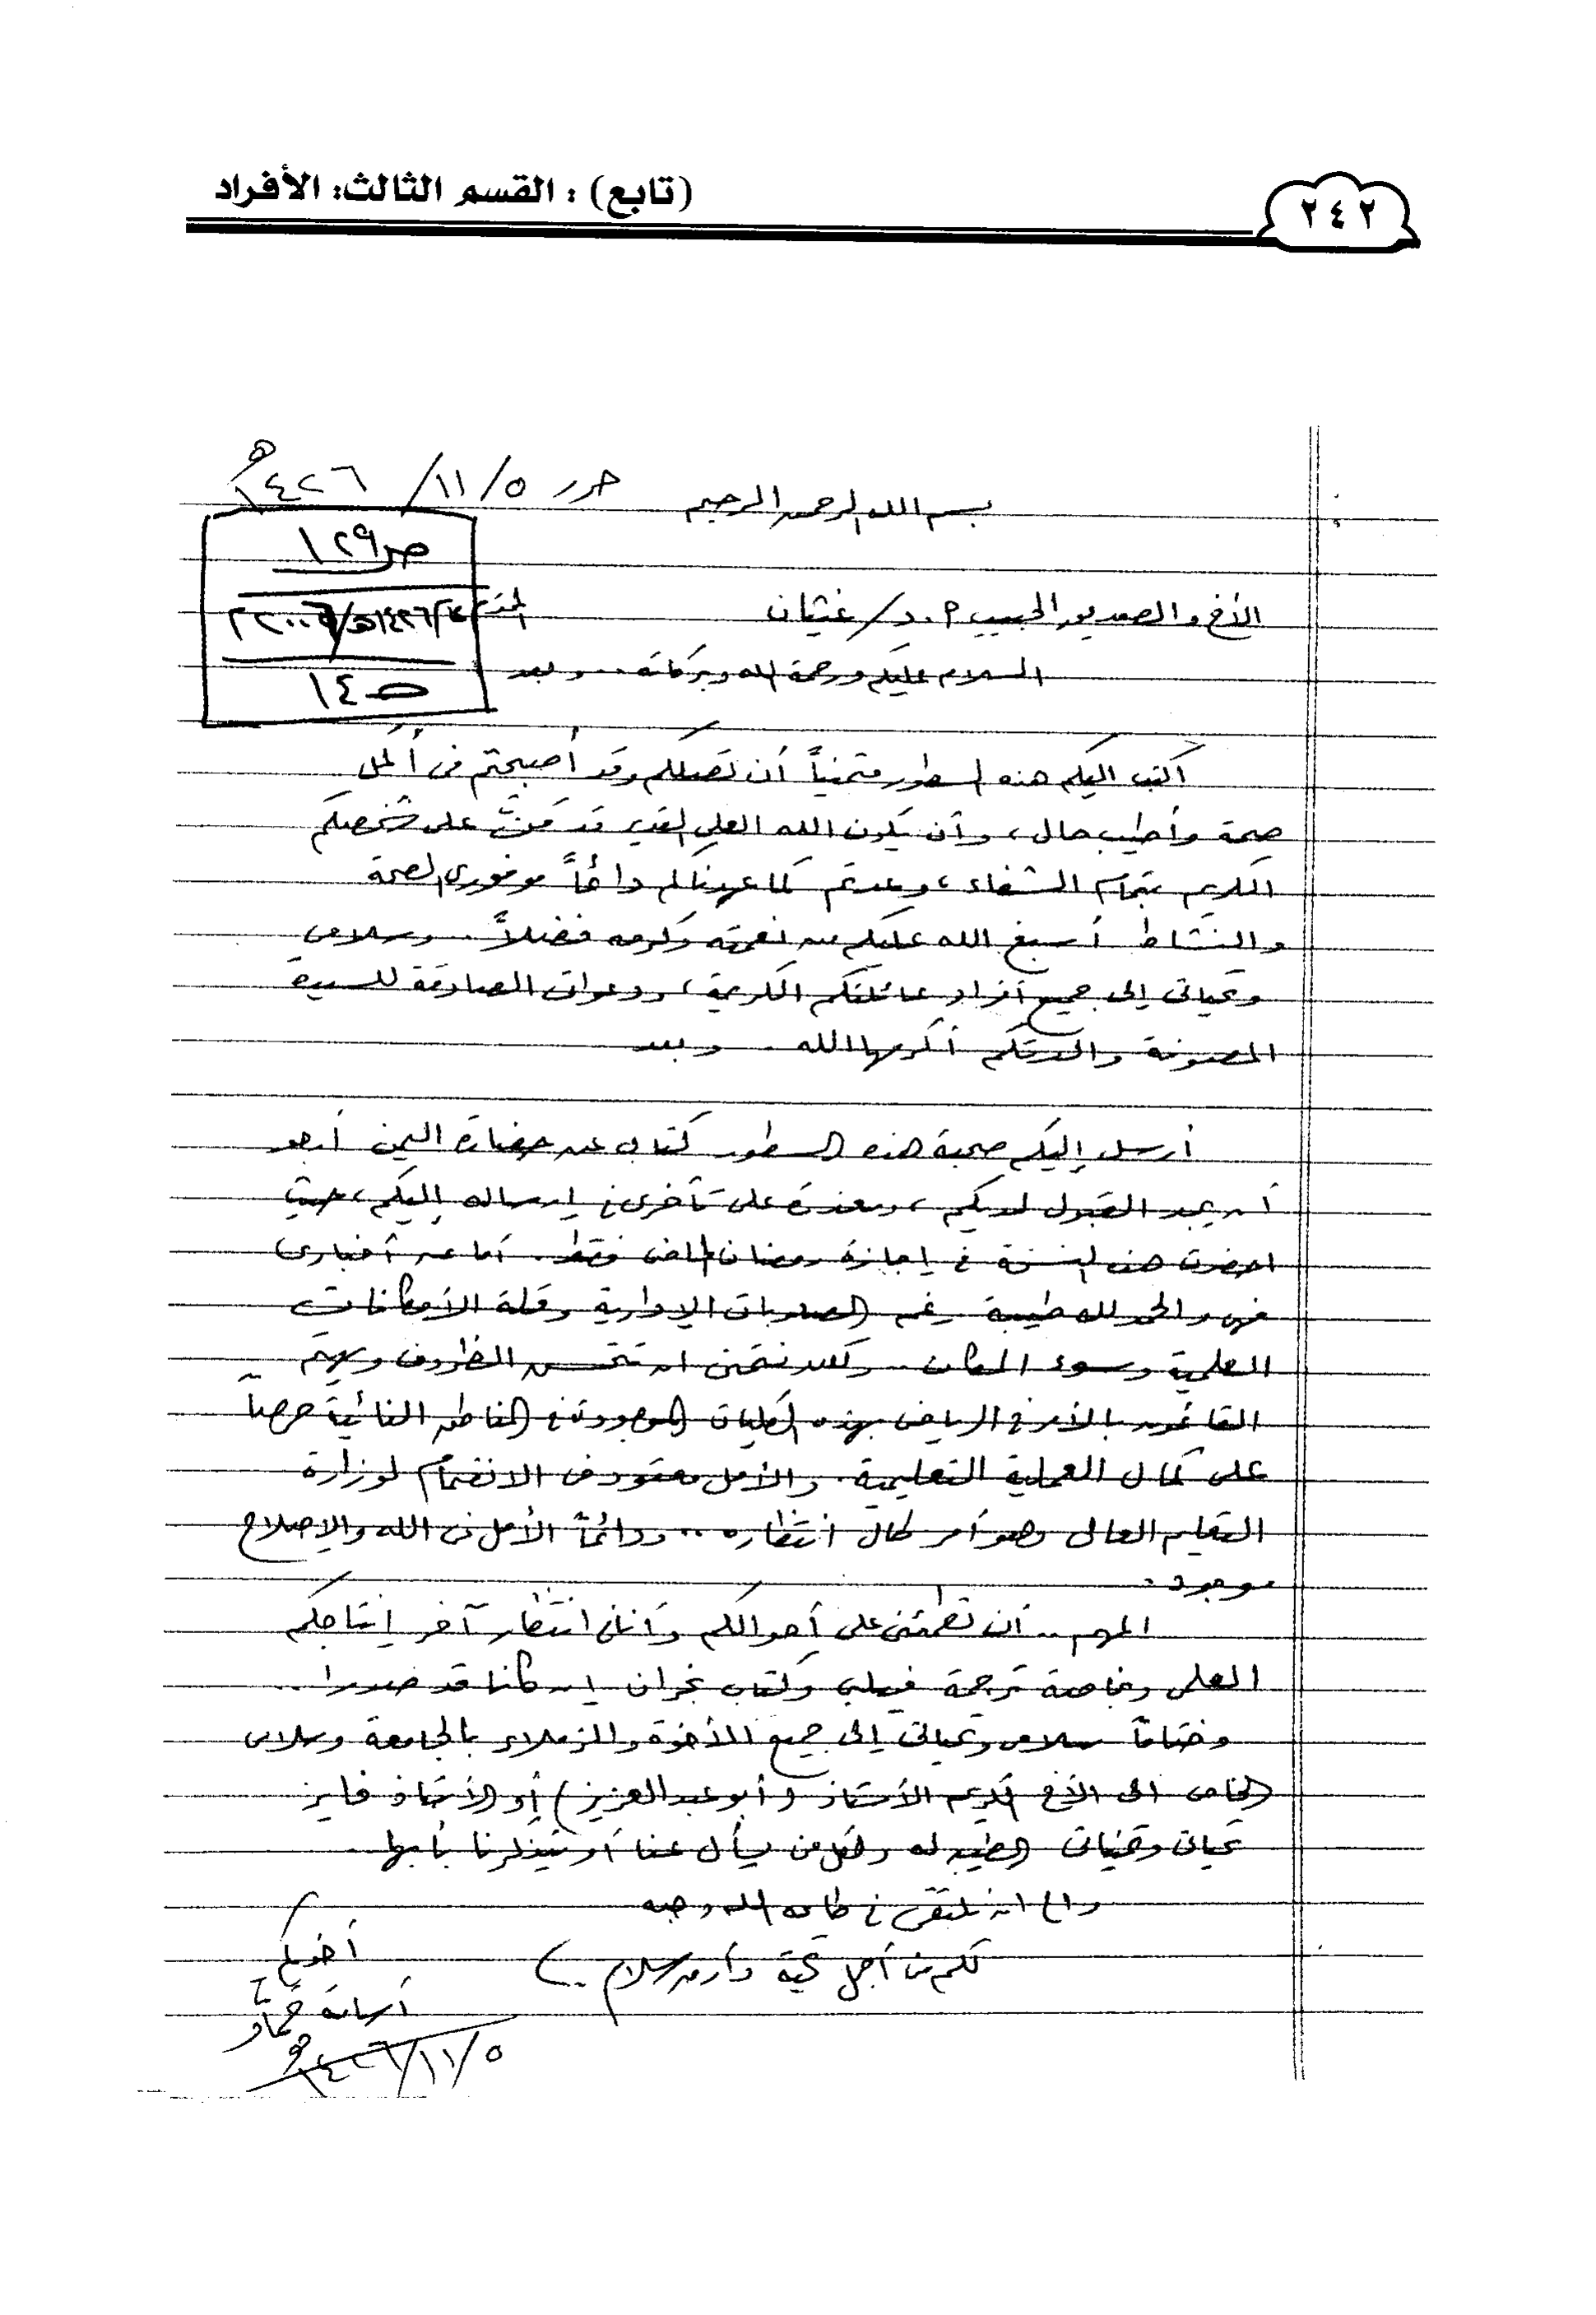 (تابع) : القسم الثالث: الأفراد
٢٤٢
حرر ٥/١١/١٤٢٦هـ
بسم الله الرحمن الرحيم
ص١٢٩
ص١٤
الأخ والصديق الحبيب أ.د/ غيثان
السلام عليكم ورحمة الله وبركاته.. وبعد
أكتب إليكم هذه السطور متمنياً أن تصلكم وقد أصبحتم في أكمل
صحة وأطيب حال، وأن يكون الله العلي القدير قد منَّ على شخصكم
الكريم بتمام الشفاء، وعدتم كما عهدناكم دائماً موفوري الصحة
والنشاط أسبغ الله عليكم من نعمته وكرمه فضلاً. وسلامي
وتحياتي إلى جميع أفراد عائلتكم الكريمة، ودعواتي الصادقة للسيدة
المصونة والدتكم أكرمها الله. وبعد
أرسل إليكم صحبة هذه السطور كتابي عن حضارة اليمن أرجو
أن يجد القبول لديكم، ومعذرة على تأخري في إرساله إليكم، حيث
احضرت هذه النسخة في إجازة رمضان الماضي فقط. أما عن أخباري
فهي والحمد لله طيبة رغم الصعوبات الإدارية وقلة الأمكانات
العلمية وسوء المكان.. ولكن نتمنى ان تتحسن الظروف ويهتم
القائمون بالأمر في الرياض بهذه الكليات الموجودة في المناطق النائية حرصاً
على كمال العملية التعليمية. والأمل معقود في الانضمام لوزارة
التعليم العالي وهو أمر طال انتظاره.. ودائماً الأمل في الله والإصلاح
موجود.
المهم.. أن تطمئني على أحوالكم وأنا في انتظار آخر إنتاجكم
العلمي وخاصة ترجمة فيلبي وكتاب نجران إن كانا قد صدرا..
وختاماً سلامي وتحياتي إلى جميع الأخوة والزملاء بالجامعة وسلامي
الخاص الى الأخ الكريم الأستاذ (أبو عبدالعزيز) أو الأستاذ فايز
تحياتي وتمنياتي الطيبة له ولكل من يسأل عنا أو يتذكرنا بأبها.
والى ان نلتقي في طاعة الله وحبه
لكم مني أجمل تحية وأرق سلام..
أخوكم
أسامة حماد
٥/١١/١٤٢٦هـ